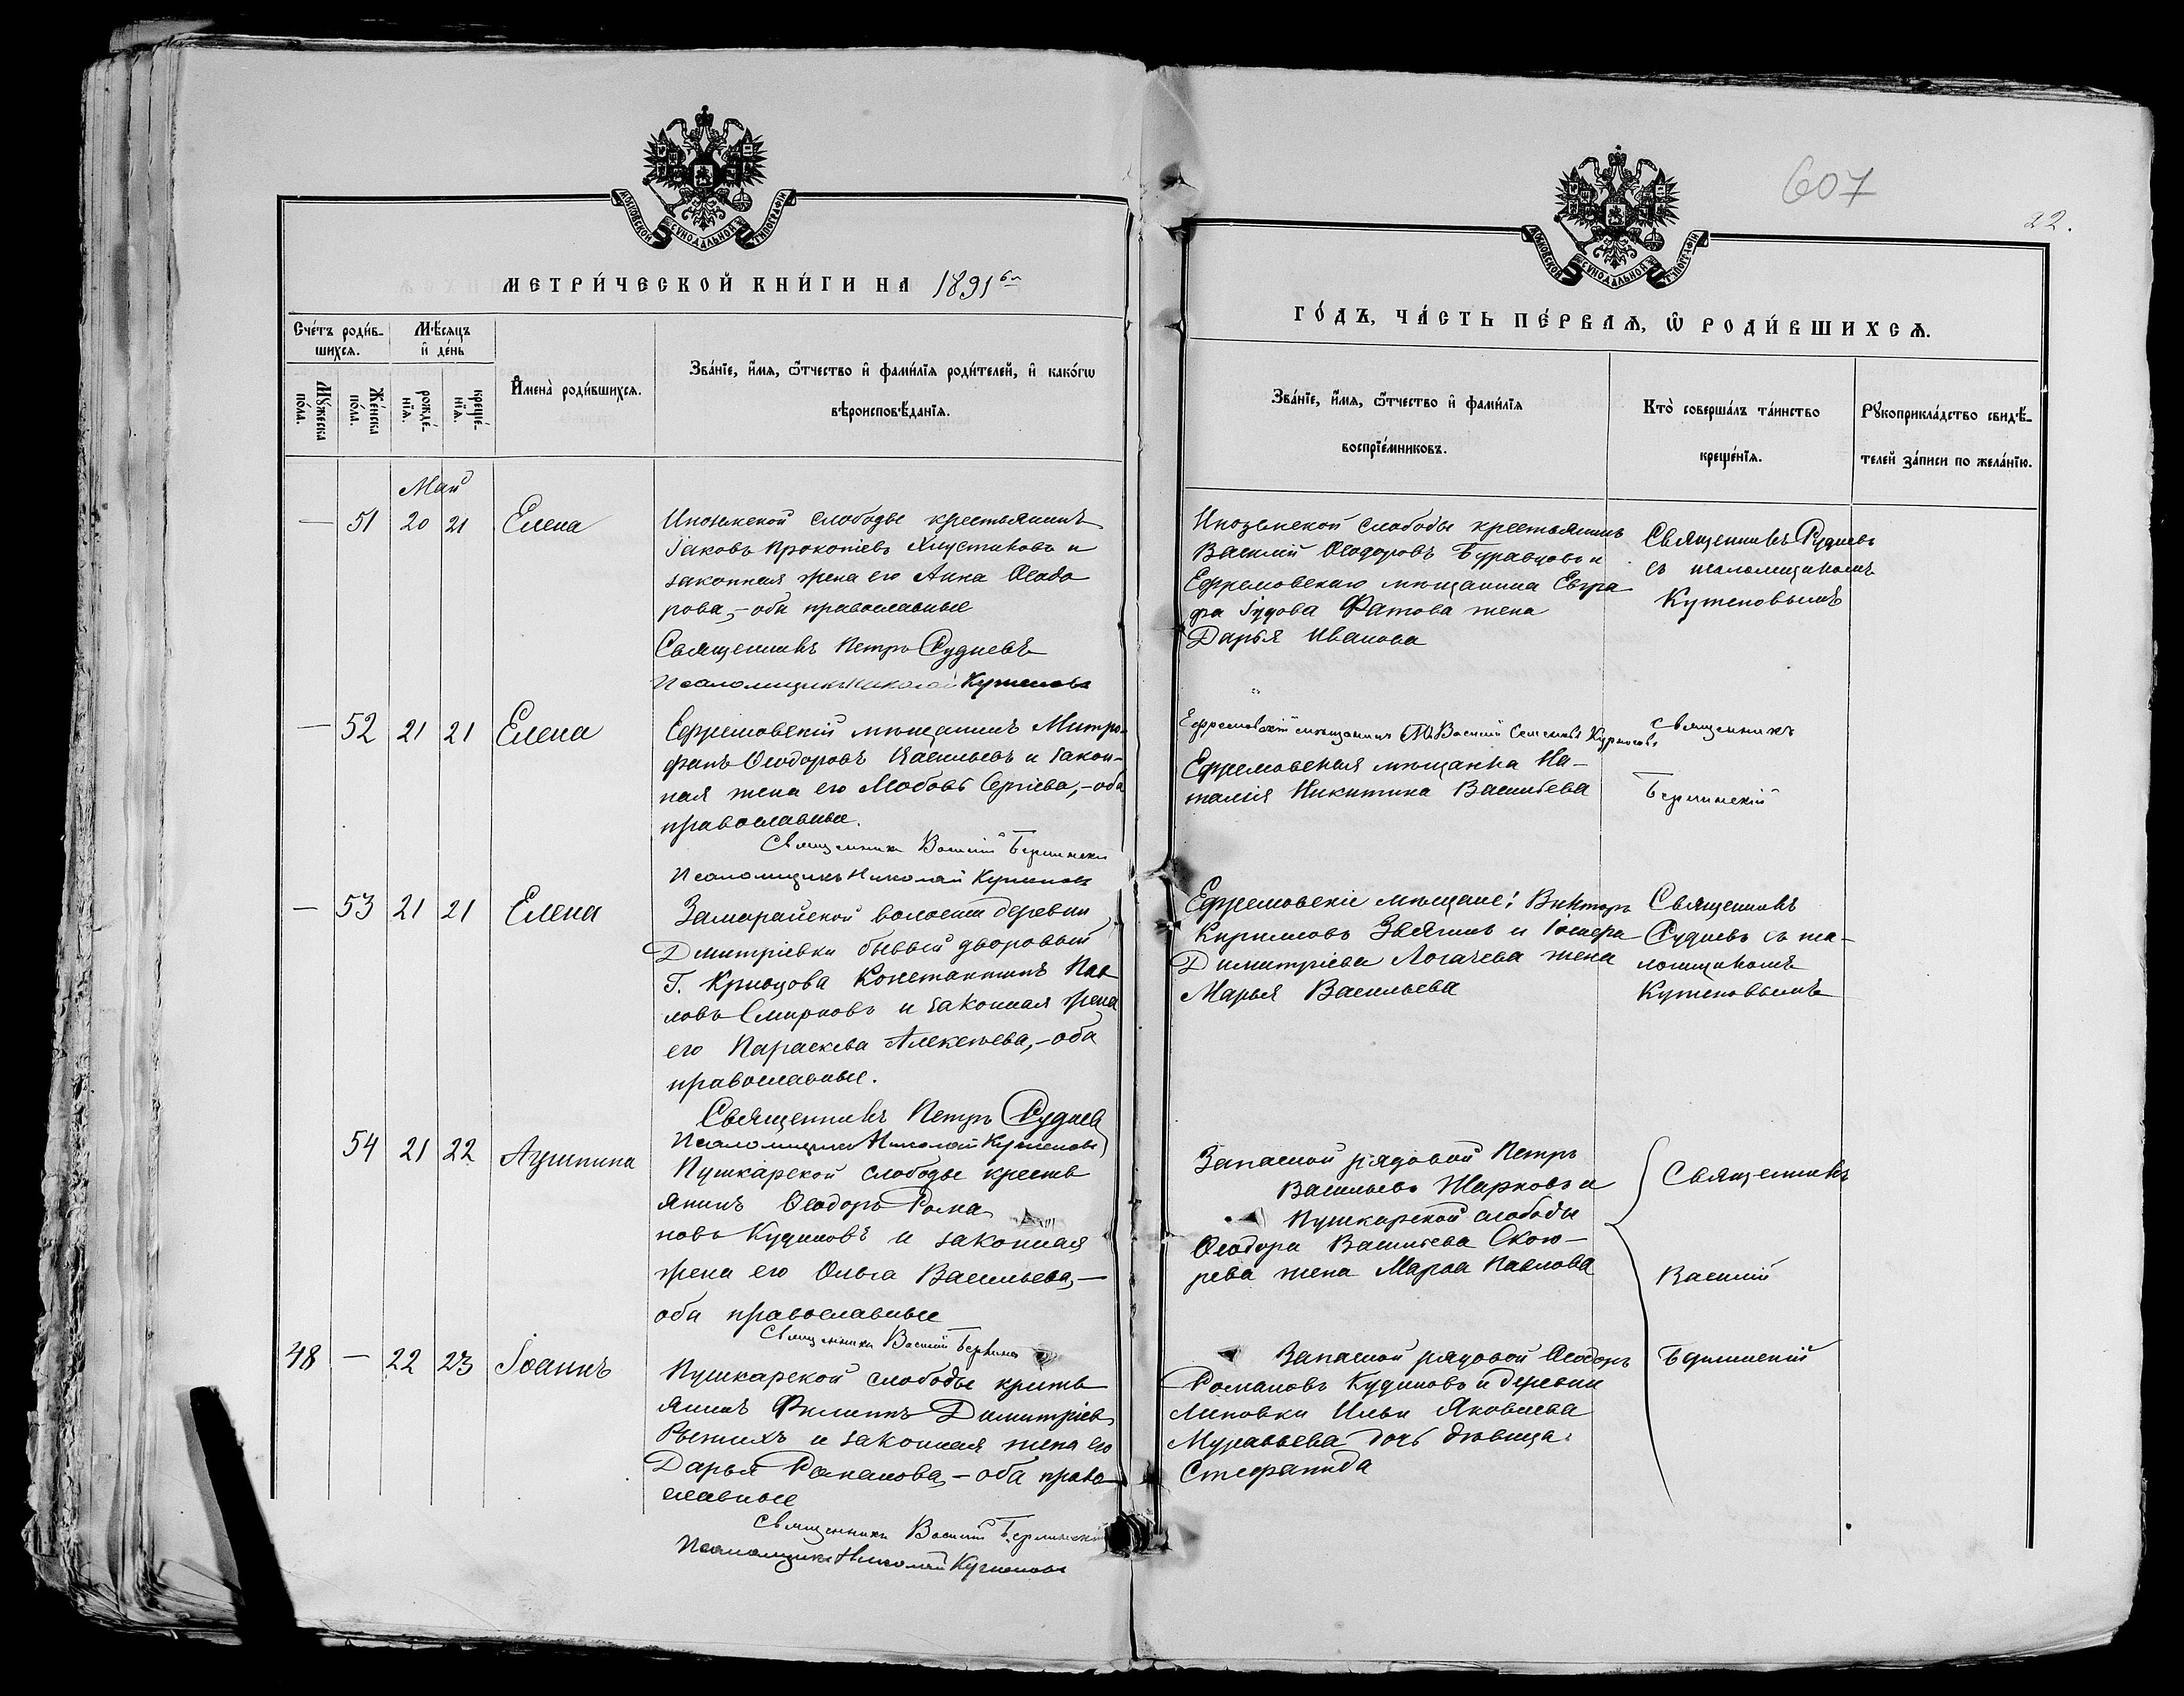 607
22.
МОСКОВСКОЙ СѴНОДАЛЬНОЙ ТИПОГРАФІИ
МОСКОВСКОЙ СѴНОДАЛЬНОЙ ТИПОГРАФІИ
МЕТРИ́ЧЕСКОЙ КНИ́ГИ НА 1891
ГО́ДЪ, ЧА́СТЬ ПЕ́РВАѦ, Ѡ РОДИ́ВШИХСѦ.
Сче́тъ роди́в-
шихсѧ.
Мѣ́сѧцъ
и҆ де́нь
Мꙋ́жеска по́ла.
Же́нска по́ла.
рожде́-нїѧ.
креще́-нїѧ.
И҆мена̀ роди́вшихсѧ.
Зва́нїе, и҆́мѧ, ѻ҆́тчество и҆ фами́лїѧ роди́телей, и҆ како́гѡ
вѣроисповѣ́данїѧ.
Зва́нїе, и҆́мѧ, ѻ҆́тчество и҆ фами́лїѧ
воспрїе́мниковъ.
Кто̀ соверша́лъ та́инство
креще́нїѧ.
Рꙋкоприкла́дство свидѣ́-
телей за́писи по жела́нїю.
Май
— 51 20 21 Елена
Иноземской слободы крестьянинъ
Іаковъ Прокопіевъ Хлустиковъ и
законная жена его Анна Ѳеодо
рова,- оба православные
Священникъ Петръ Рудневъ
Псаломщикъ Николай Кутеповъ
Иноземской слободы крестьянинъ
Василий Ѳеодоровъ Буравцовъ и
Ефремовскаго мѣщанина Евгра
фа Іудова Фатова жена
Дарья Иванова
Священникъ Рудневъ
съ псаломщикомъ
Кутеповымъ
— 52 21 21 Елена
Ефремовскій мѣщанинъ Митро-
фанъ Ѳеодоровъ Васильевъ и закон-
ная жена его Любовь Сергіева,- оба
православные.
Священникъ Василій Берлинскій
Псаломщикъ Николай Кутеповъ
Ефремовскій мѣщанинъ Василій Семеновъ Курносовъ
Ефремовская мѣщанка На-
талія Никитина Васильева
Священникъ
Берлинскій
— 53 21 21 Елена
Заморайской волости деревни
Дмитріевки бывшій дворовый
Г. Кривцова Константинъ Пав
ловъ Смирновъ и законная жена
его Параскева Алексѣева,- оба
православные.
Священникъ Петръ Руднев
Псаломщикъ Николай Кутеповъ
Ефремовскіе мѣщане: Викторъ
Кирилловъ Звягинъ и Іосифа
Димитріева Логачева жена
Марья Васильева
Священникъ
Рудневъ съ пса-
ломщикомъ
Кутеповымъ
54 21 22 Агрипина
Пушкарской слободы кресть
янинъ Ѳеодоръ Рома
новъ Кудиновъ и законная
жена его Ольга Васильева,-
оба православные
Священникъ Василій
Запасной рядовой Петръ
Васильевъ Жарковъ и
Пушкарской слободы
Ѳеодора Васильева
жена Марѳа Павлова
Священникъ
Василій
Берлинскій
48 — 22 23 Іоаннъ
Пушкарской слободы кресть
янинъ Филиппъ Димитріев
и законная жена его
Дарья Романова,- оба право
славные
Священникъ Василій Берлинскій
Псаломщикъ Николай Кутеповъ
Запасной рядовой Ѳеодоръ
Романовъ Кудиновъ и деревни
Липовки Ильи Яковлева
Муравьева дочь дѣвица
Стефанида